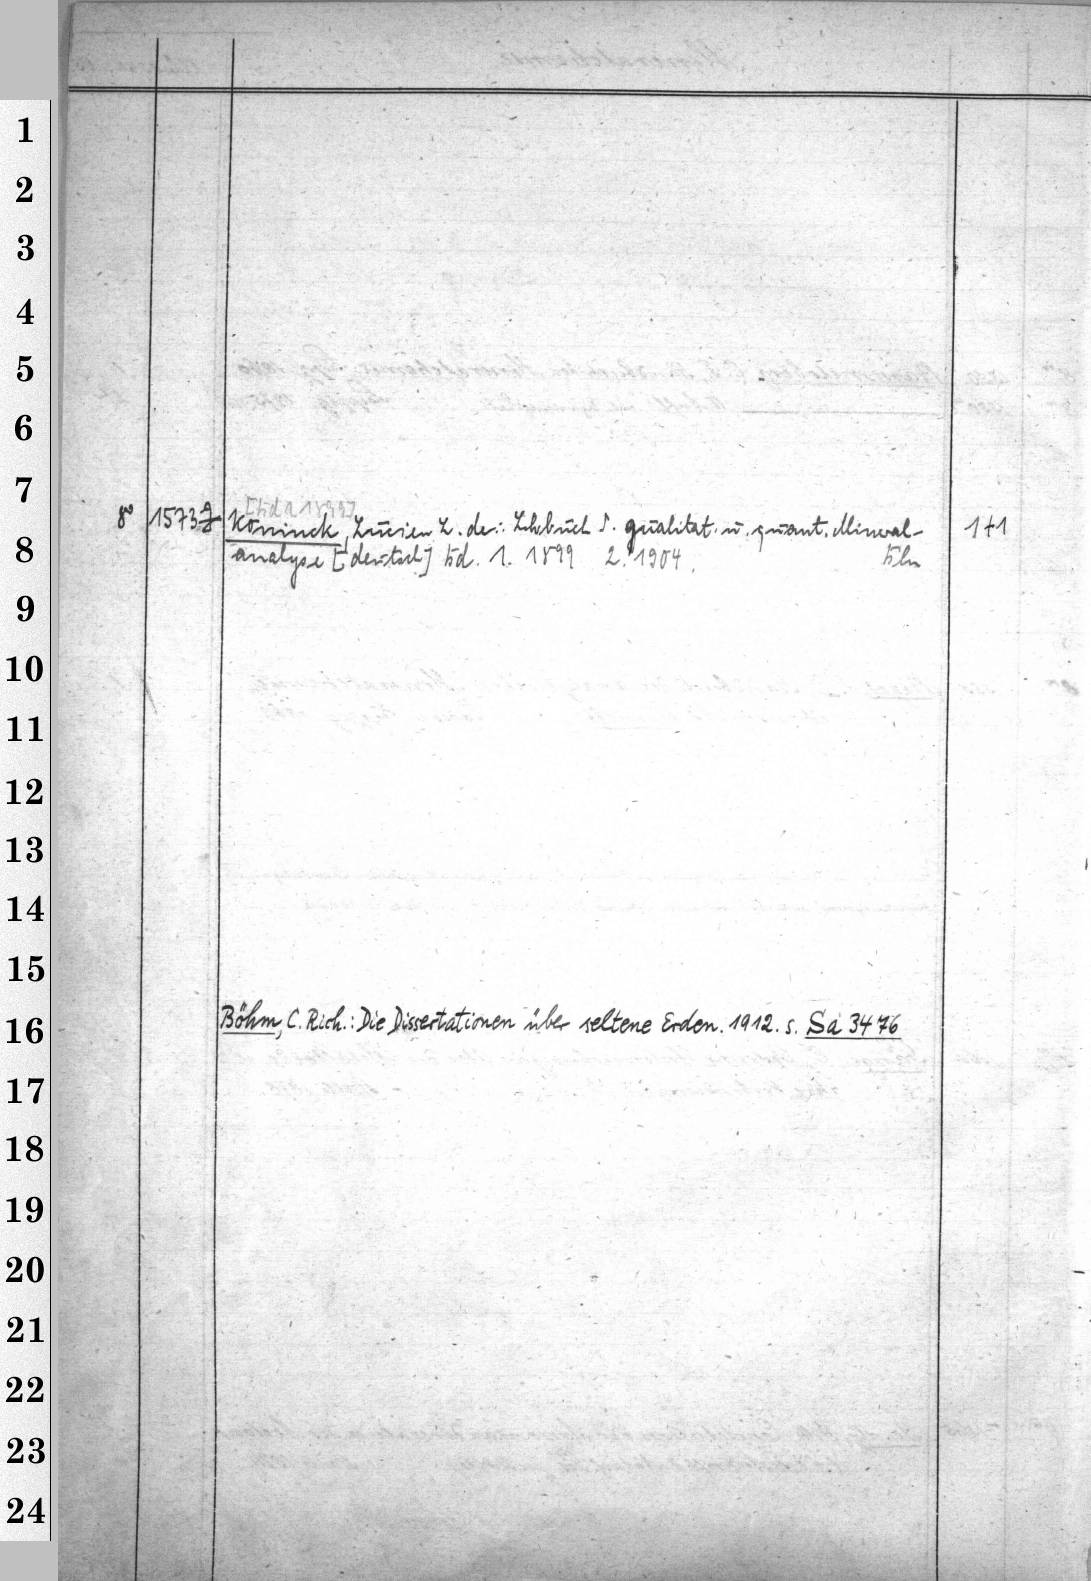 1
2
3
4
5
6
7
[Bd 1 1899]
8° 1573 g Koninck, Lucien L. de: Lehrbuch d. qualitat. u. quant. Mineral- 1+1
8
analyse [deutsch] Bd. 1. 1899 2. 1904. Bln
9
10
11
12
13
14
15
16
Böhm, C. Rich.: Die Dissertationen über seltene Erden. 1912. s. Sa 3476
17
18
19
20
21
22
23
24